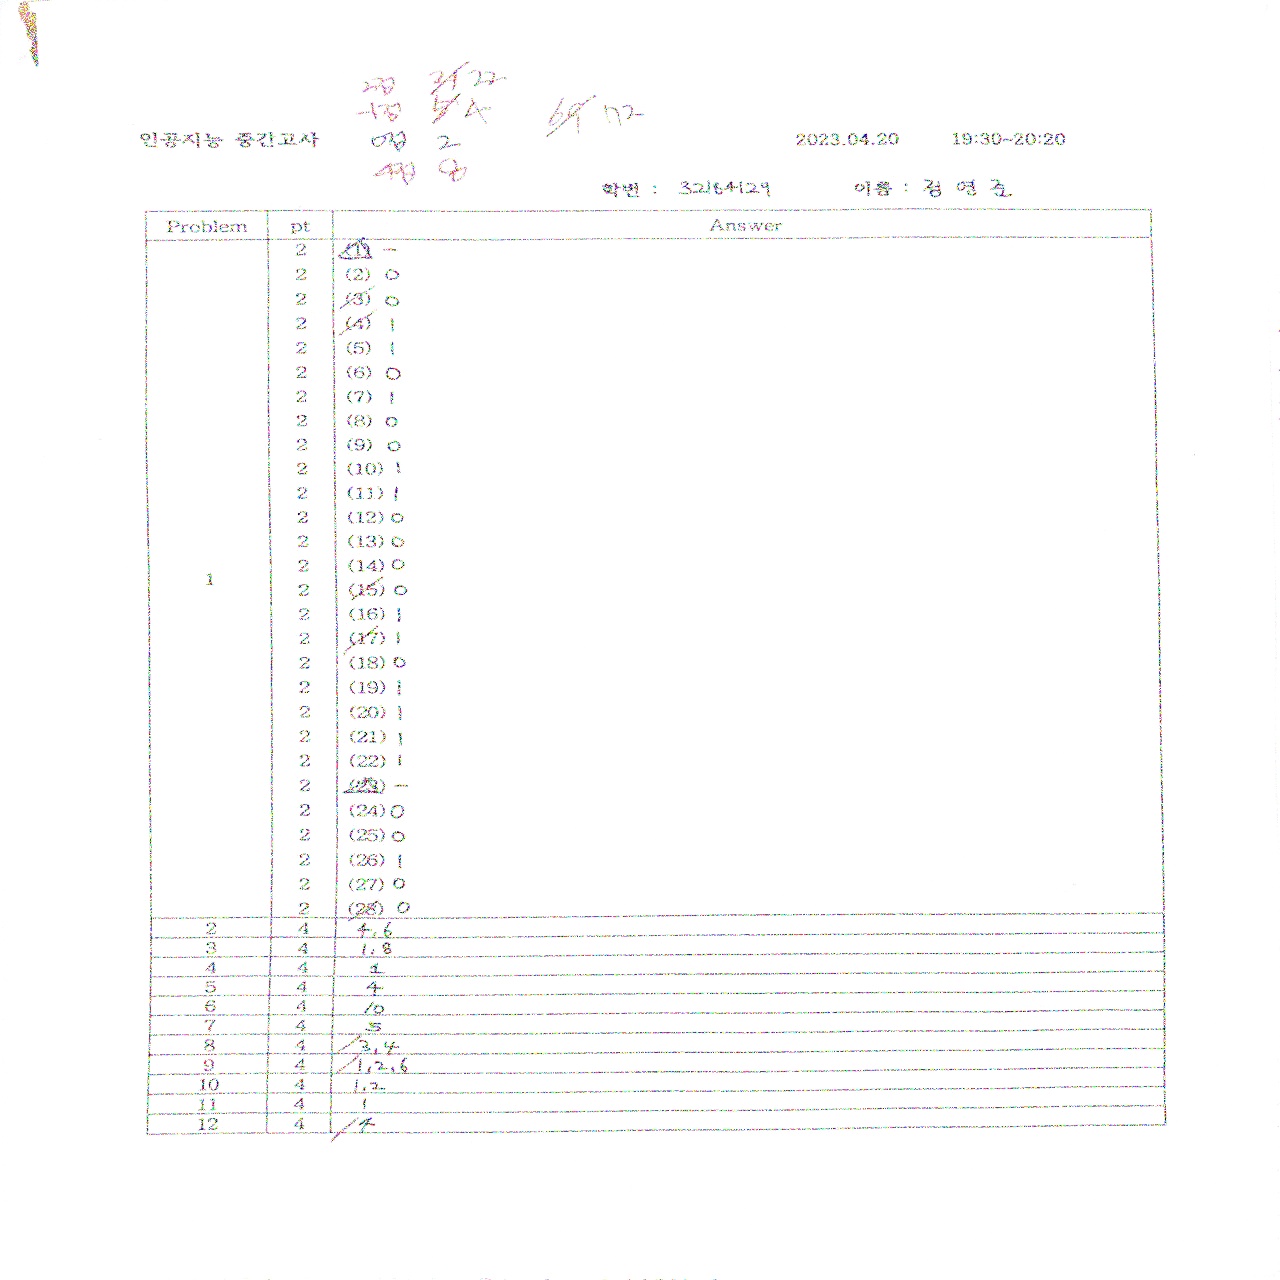 2점 21 22
-1점 5 4 69 72
여백 2
8
인공지능 중간고사 2023.04.20 19:30~20:20
학번 : 32164129 이름 : 정연준
Problem pt Answer
1
2 (1) -
2 (2) 0
2 (3) 0
2 (4) 1
2 (5) 1
2 (6) 0
2 (7) 1
2 (8) 0
2 (9) 0
2 (10) 1
2 (11) 1
2 (12) 0
2 (13) 0
2 (14) 0
2 (15) 0
2 (16) 1
2 (17) 1
2 (18) 0
2 (19) 1
2 (20) 1
2 (21) 1
2 (22) 1
2 (23) -
2 (24) 0
2 (25) 0
2 (26) 1
2 (27) 0
2 (28) 0
2 4 4,6
3 4 1,8
4 4 1
5 4 4
6 4 10
7 4 5
8 4 3,4
9 4 1,2,6
10 4 1,2
11 4 1
12 4 4